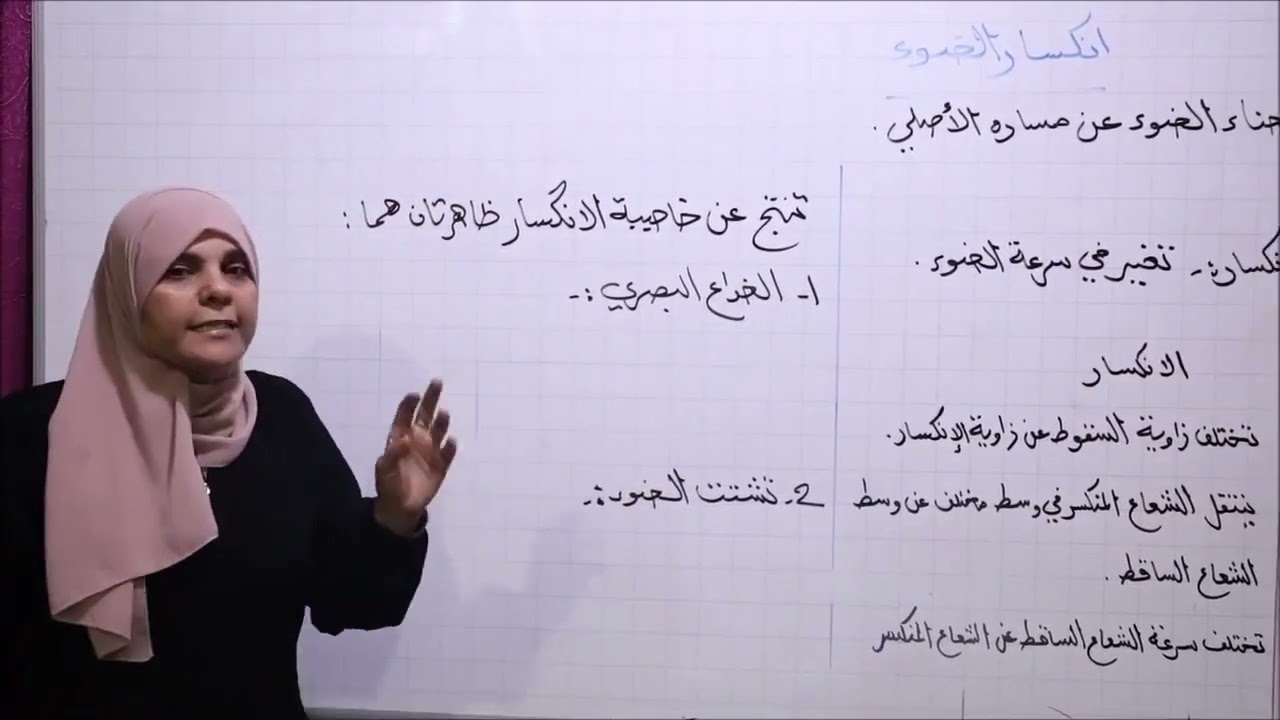 انكسار الضوء
حناء الضوء عن مساره الأصلي .
نكساره :- تغيير في سرعة الضوء .
الانكسار
تختلف زاوية السقوط عن زاوية الإنكسار.
ينتقل الشعاع المنكسر في وسط مختلف عن وسط
الشعاع الساقط .
تختلف سرعة الشعاع الساقط عن الشعاع المنكسر
تنتج عن خاصية الانكسار ظاهرتان هما :
1- الخداع البصري :-
2- تشتت الضوء :-